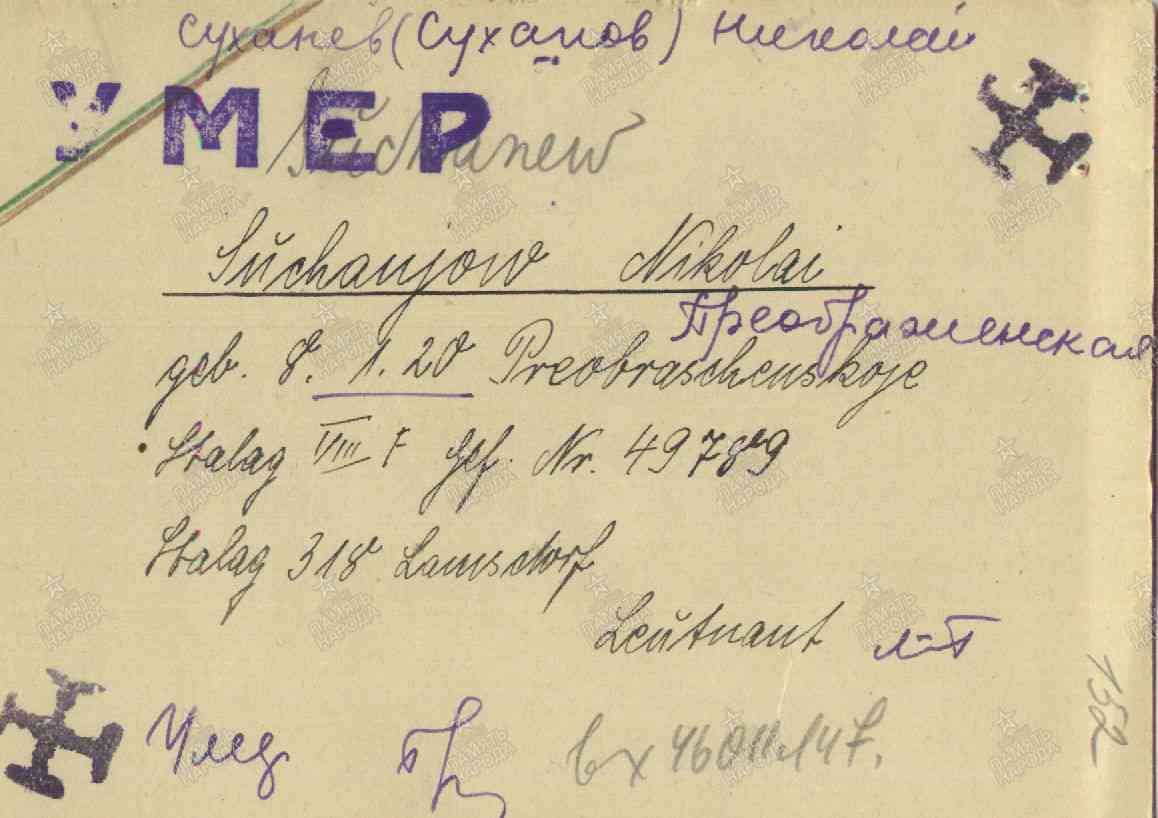 Суханев (Суханов) Николай
УМЕР
Suchanew
Sŭchanjow Nikolai
Преображенская
geb. 8. 1. 20 Preobraschenskoje
Stalag VIII F Gef. Nr. 49789
Stalag 318 Lamsdorf
Leŭtnant л-т
вх 46011 147.
152
ПАМЯТЬ НАРОДА